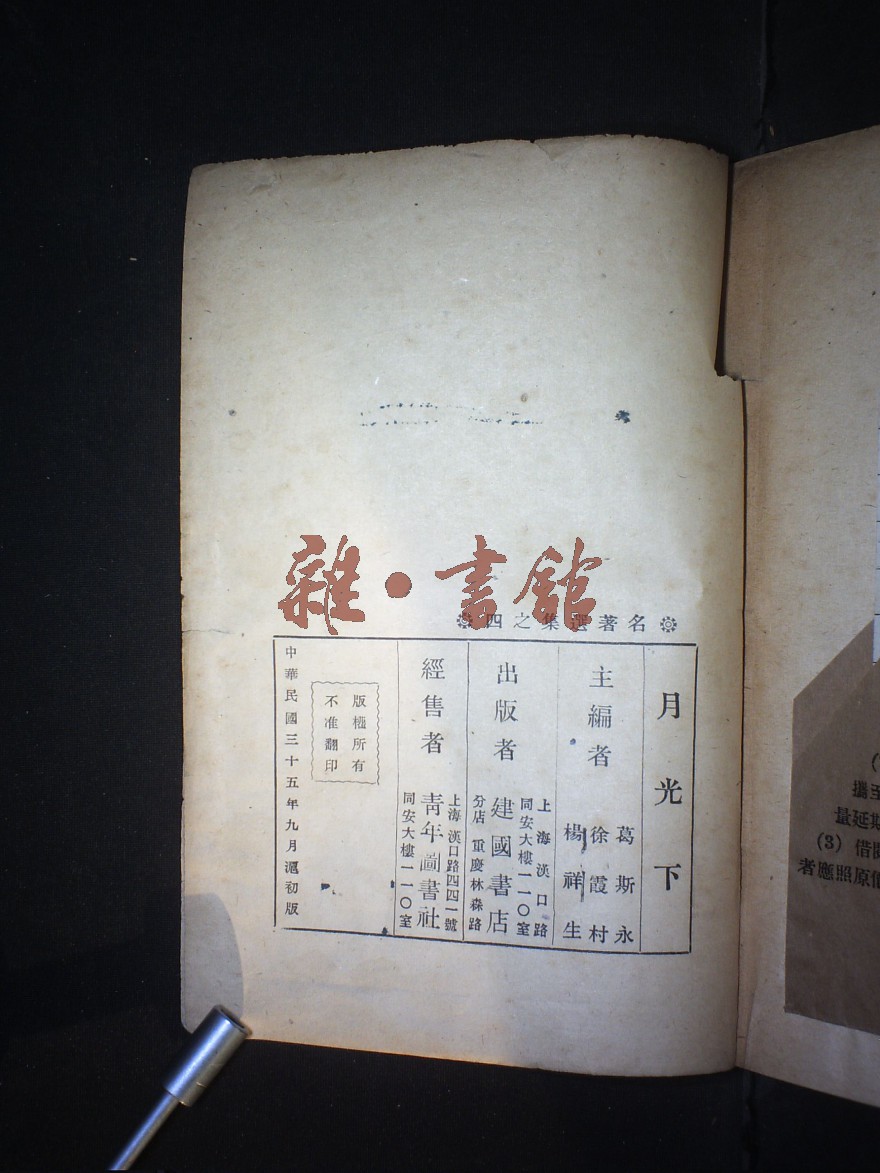 雜·書館
名著選集之四
月光下
主編者
葛斯永
徐霞村
楊祥生
出版者
上海漢口路
同安大樓一一〇室
建國書店
分店 重慶林森路
經售者
上海漢口路四四一號
青年圖書社
同安大樓一一〇室
版權所有
不准翻印
中華民國三十五年九月滬初版
攜至
量延期
(3) 借閱
者應照原價